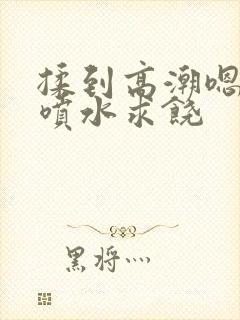 揉到高潮嗯
喷水求饶
黑将灬